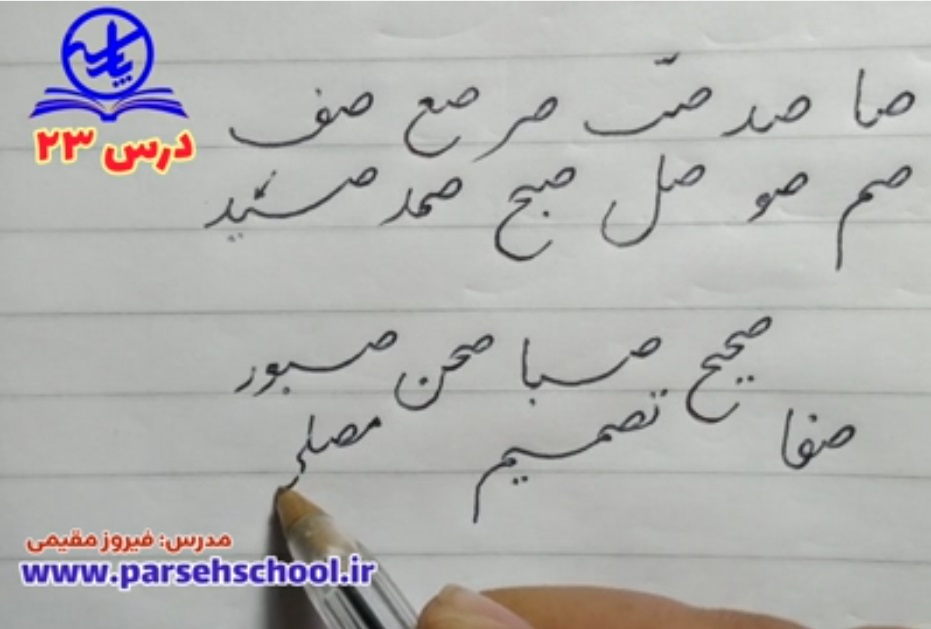 درس ۲۳
صا صد صب صر صع صف
صم صو صل صبح صمد صید
صحیح صبا صحن صبور
صفا تصمیم مصلی
مدرس: فیروز مقیمی
www.parsehschool.ir